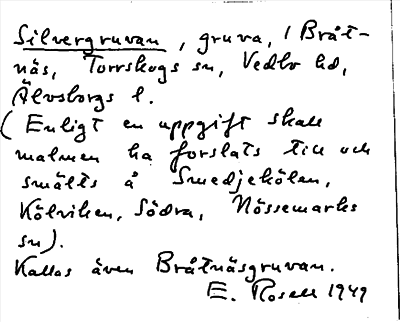 Silvergruvan, gruva, i Bråt-
näs, Torrskogs sn, Vedbo hd,
Älvsborgs l.
(Enligt en uppgift skall
malmen ha forslats till och
smälts å Smedjekölen,
Kölviken, Södra, Nössemarks
sn).
Kallas även Bråtnäsgruvan.
E. Rosell 1949